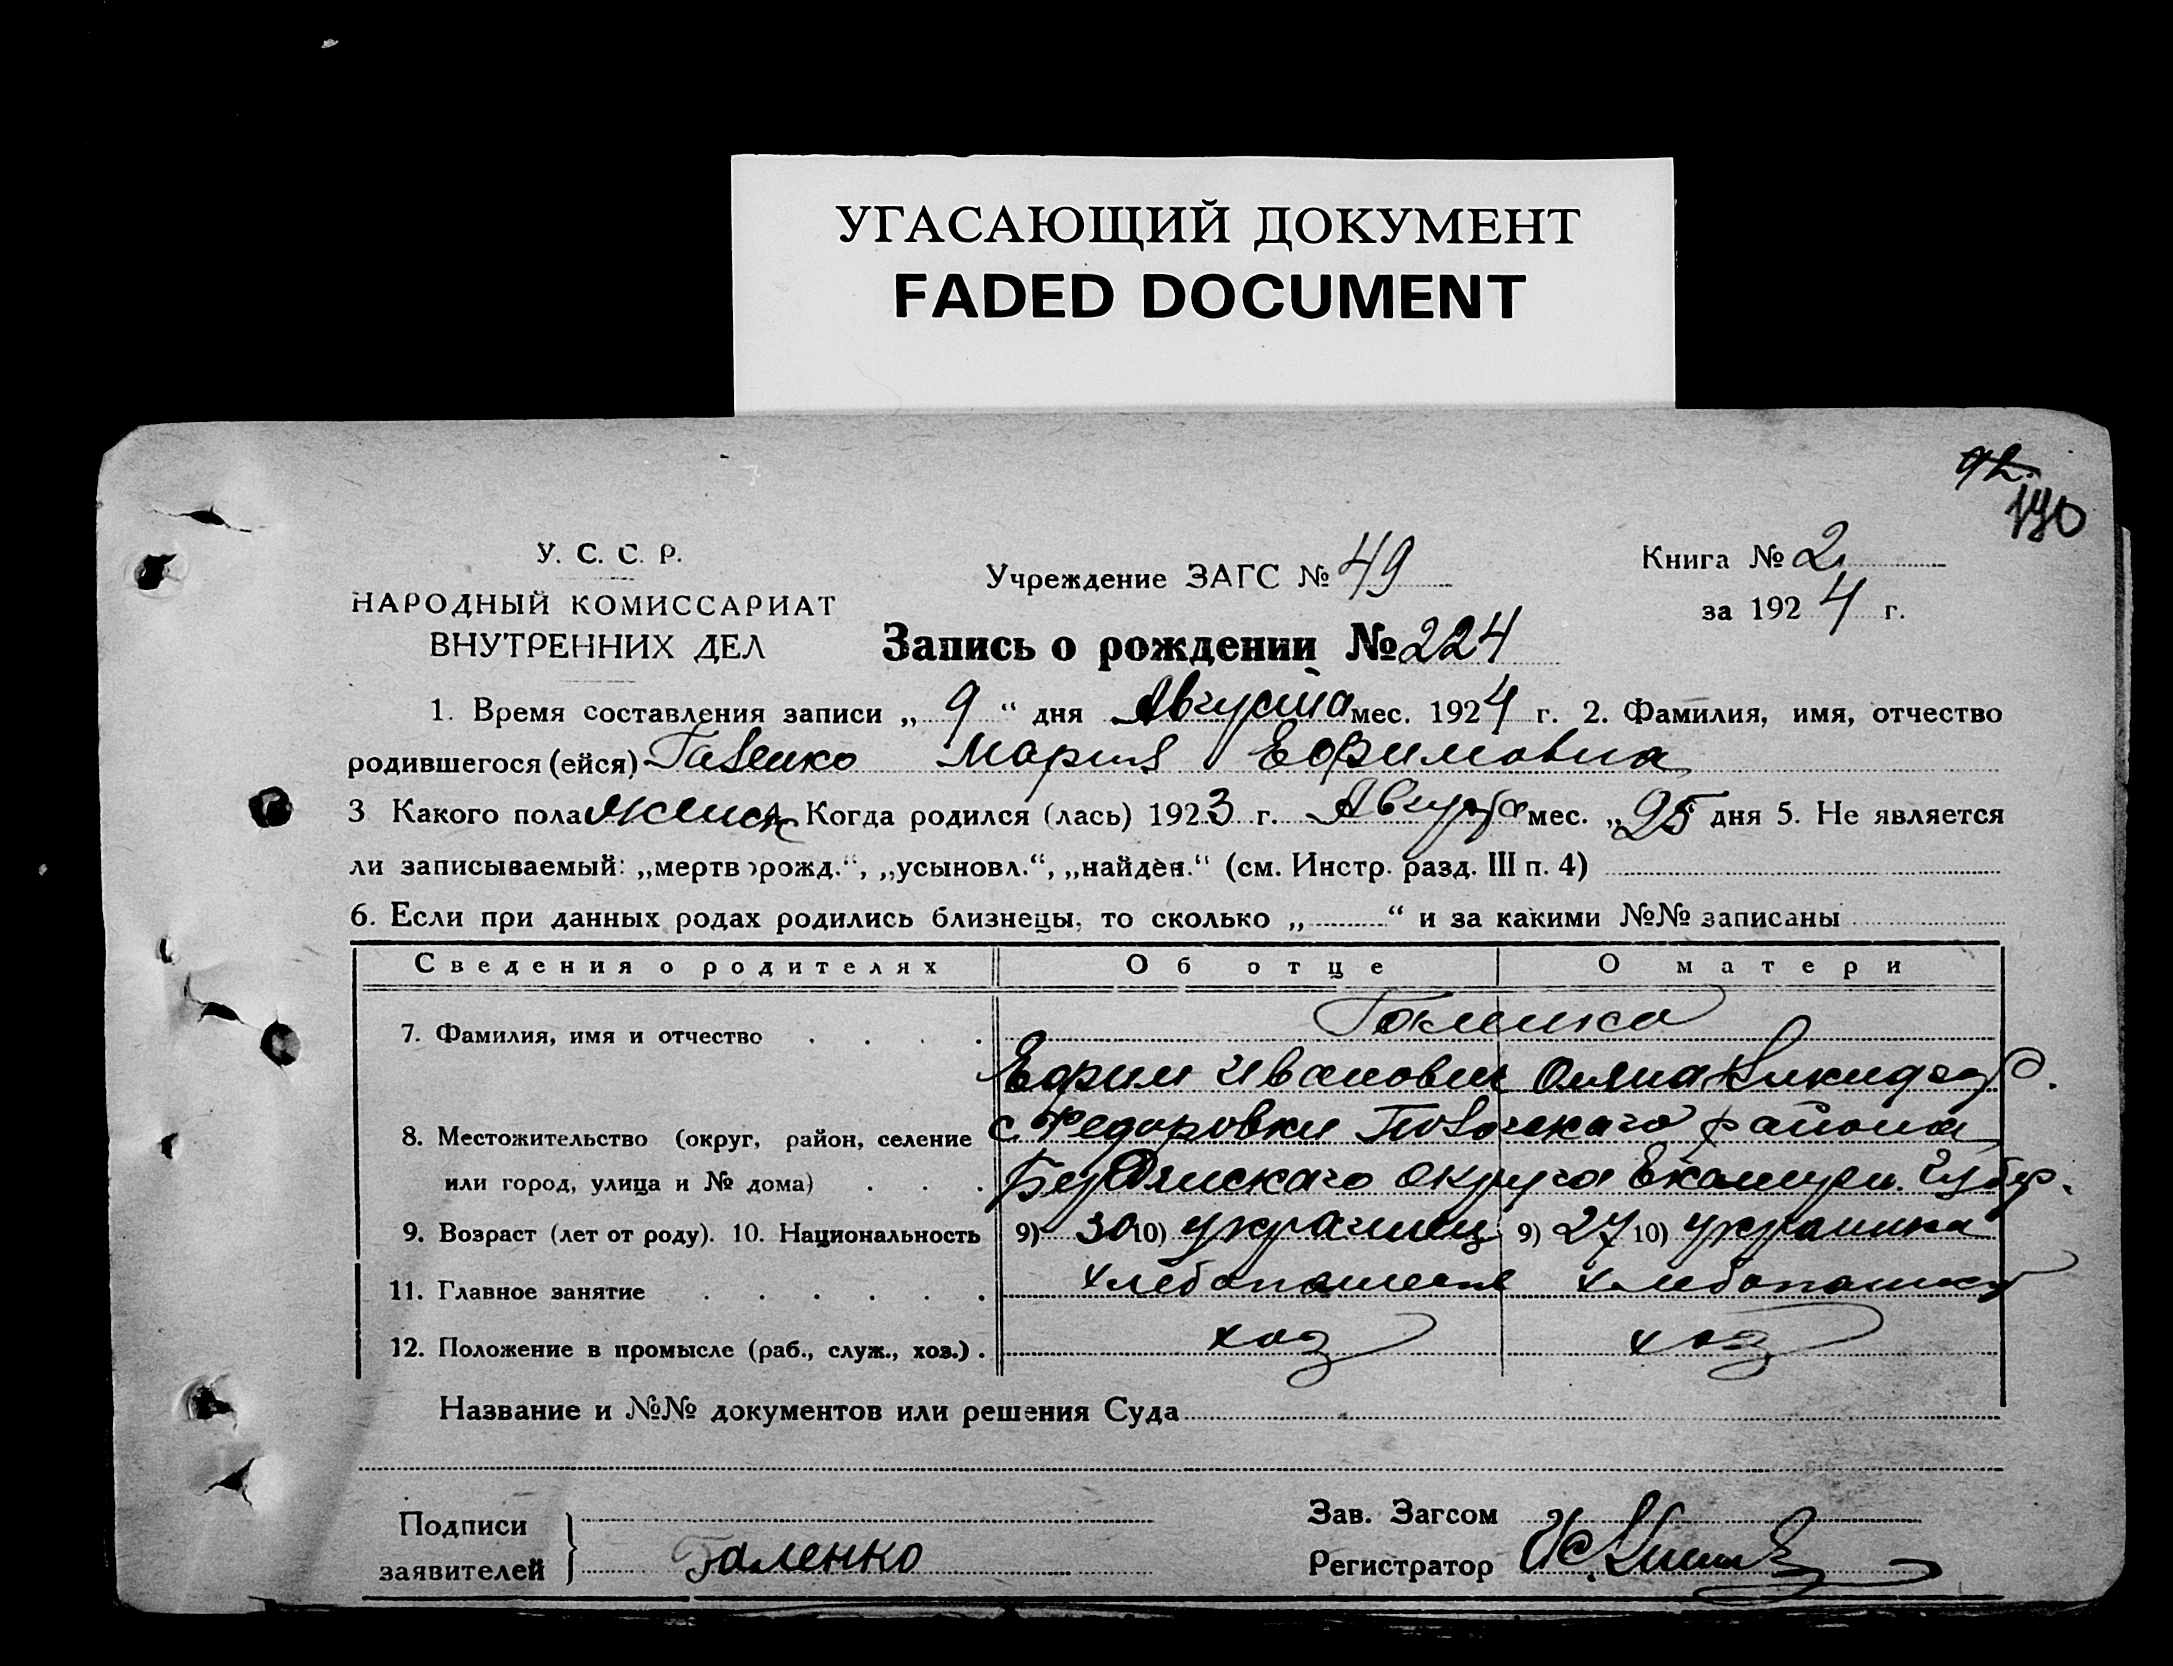 УГАСАЮЩИЙ ДОКУМЕНТ
FADED DOCUMENT
92.
190
У. С. С. Р.
НАРОДНЫЙ КОМИССАРИАТ
ВНУТРЕННИХ ДЕЛ
Учреждение ЗАГС № 49
Книга № 2
за 1924 г.
Запись о рождении № 224
1. Время составления записи „ 9 “ дня Августа мес. 1924 г. 2. Фамилия, имя, отчество
родившегося (ейся) Галенко Мария Ефимовна
3 Какого пола женск 4. Когда родился (лась) 1923 г. Августа мес. „ 25 дня 5. Не является
ли записываемый: „мертворожд.“, „усыновл.“, „найден.“ (см. Инстр. разд. III п. 4)
6. Если при данных родах родились близнецы, то сколько „ “ и за какими №№ записаны
Сведения о родителях Об отце О матери
7. Фамилия, имя и отчество Галенко
Ефим Иванович
8. Местожительство (округ, район, селение с. Федоровки района
или город, улица и № дома) Бердянскаго округа Екатери. Губер.
9. Возраст (лет от роду). 10. Национальность 9) 30 10) украинец 9) 27 10) украинка
11. Главное занятие хлебопашест хлебопашест
12. Положение в промысле (раб., служ., хоз.) хоз хоз
Название и №№ документов или решения Суда
Подписи
заявителей
Галенко
Зав. Загсом
Регистратор